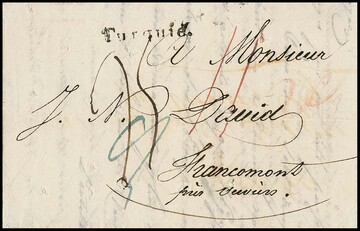 Turquie.
A Monsieur
J. N. David
Francomont
près Verviers.